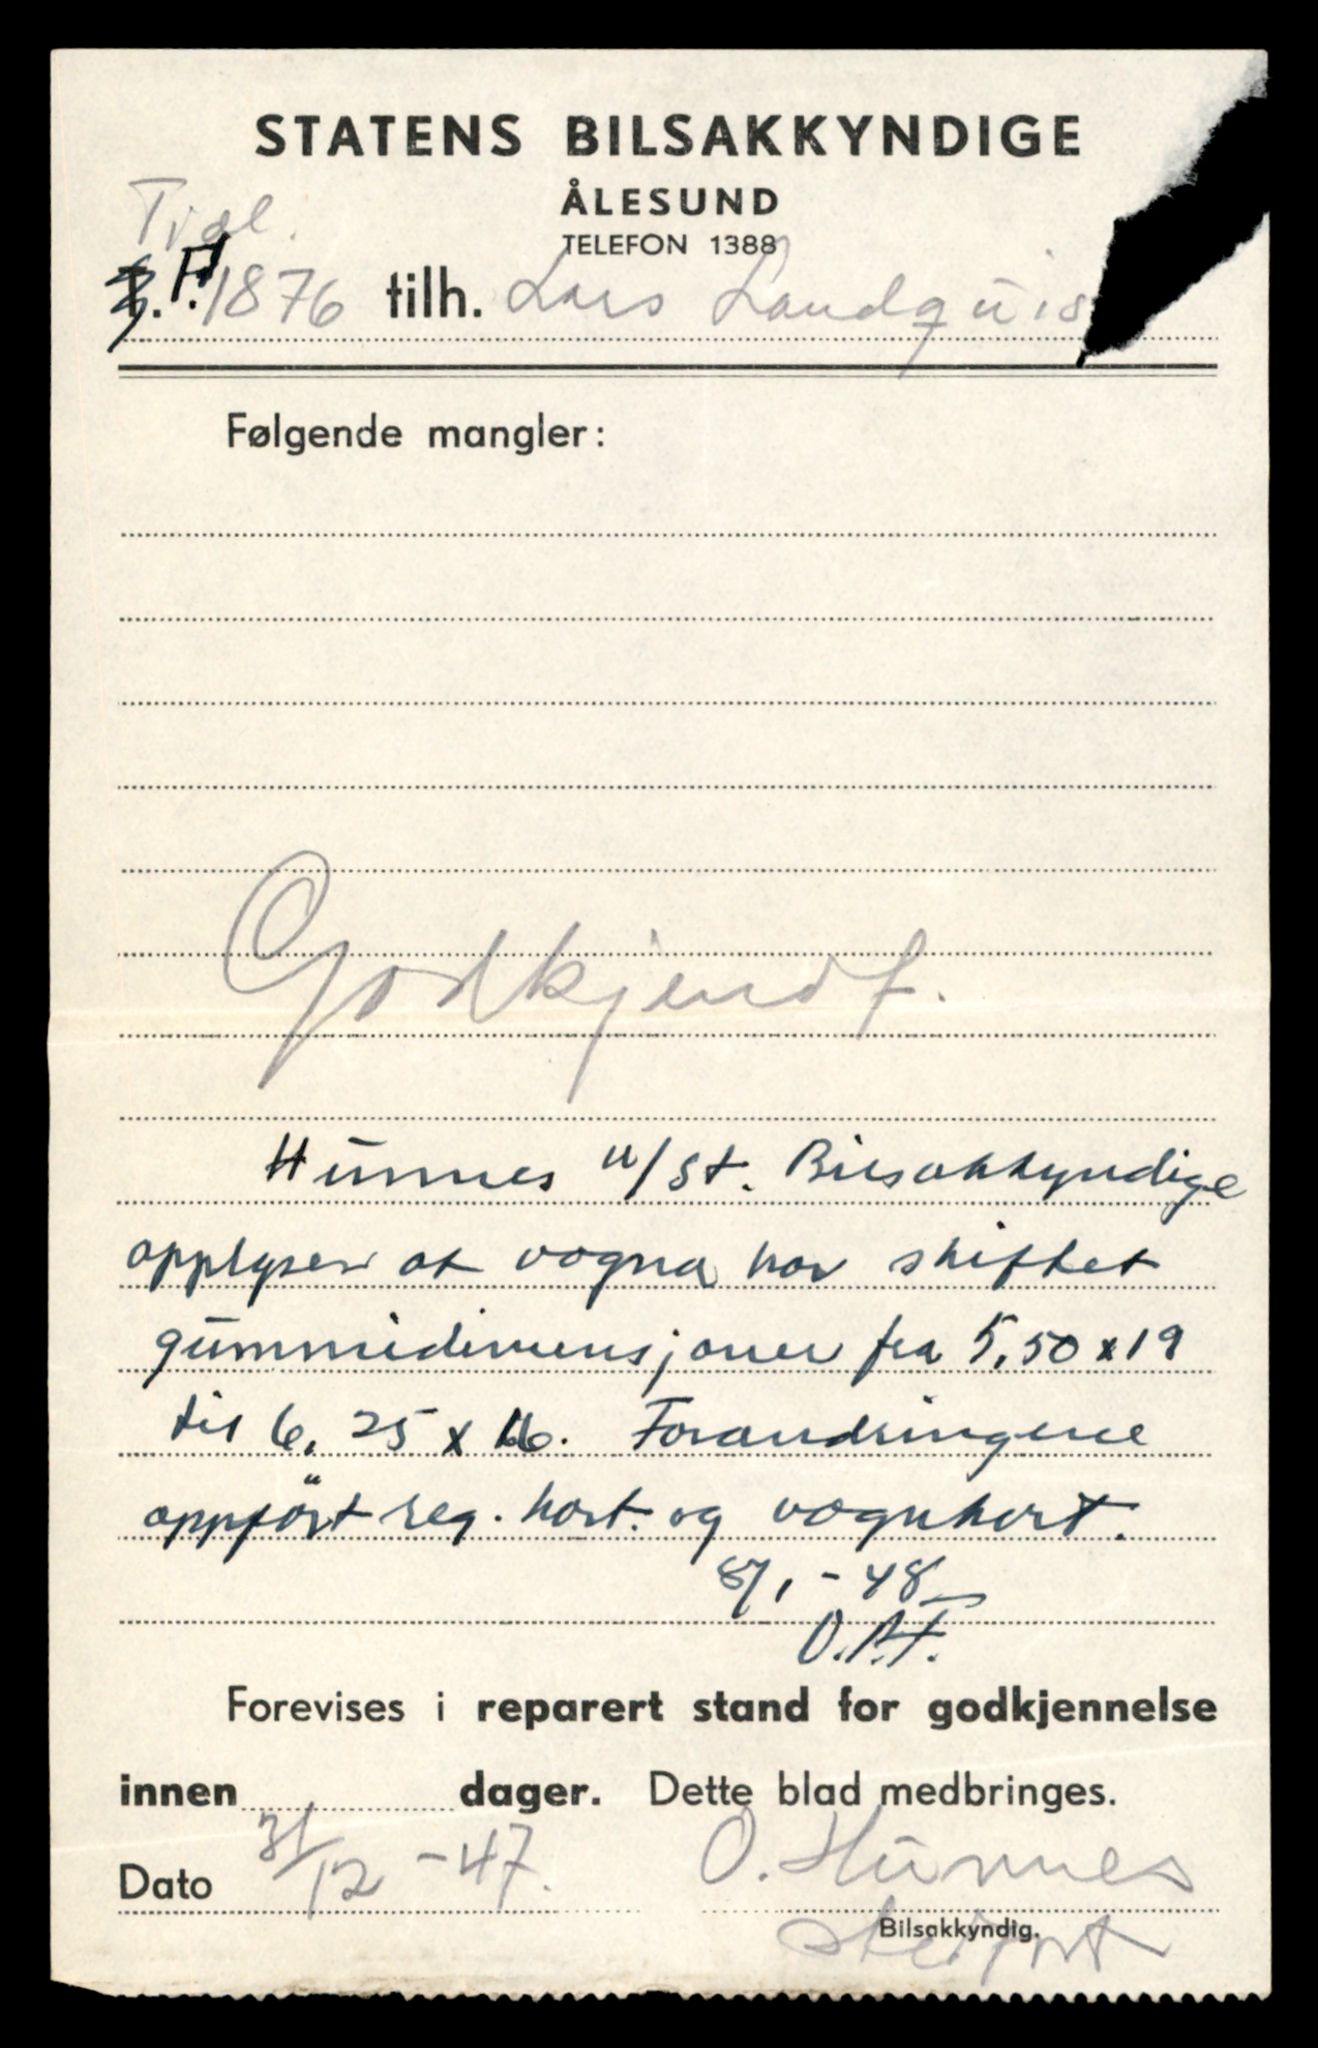 STATENS BILSAKKYNDIGE
ÅLESUND
TELEFON 1388
F. 1876 tilh. Lars Landquis
Følgende mangler:
Godkjendt.
Hunnes v/St. Bilsakkyndige
opplyser at vogna har skiftet
gummidimensjoner fra 5,50 x 19
til 6,25 x 16. Forandringene
oppført reg. kort. og vognkort.
8/1-48
O.A.F.
Forevises i reparert stand for godkjennelse
innen dager. Dette blad medbringes.
Dato 31/12-47. O. Hunnes
Bilsakkyndig.